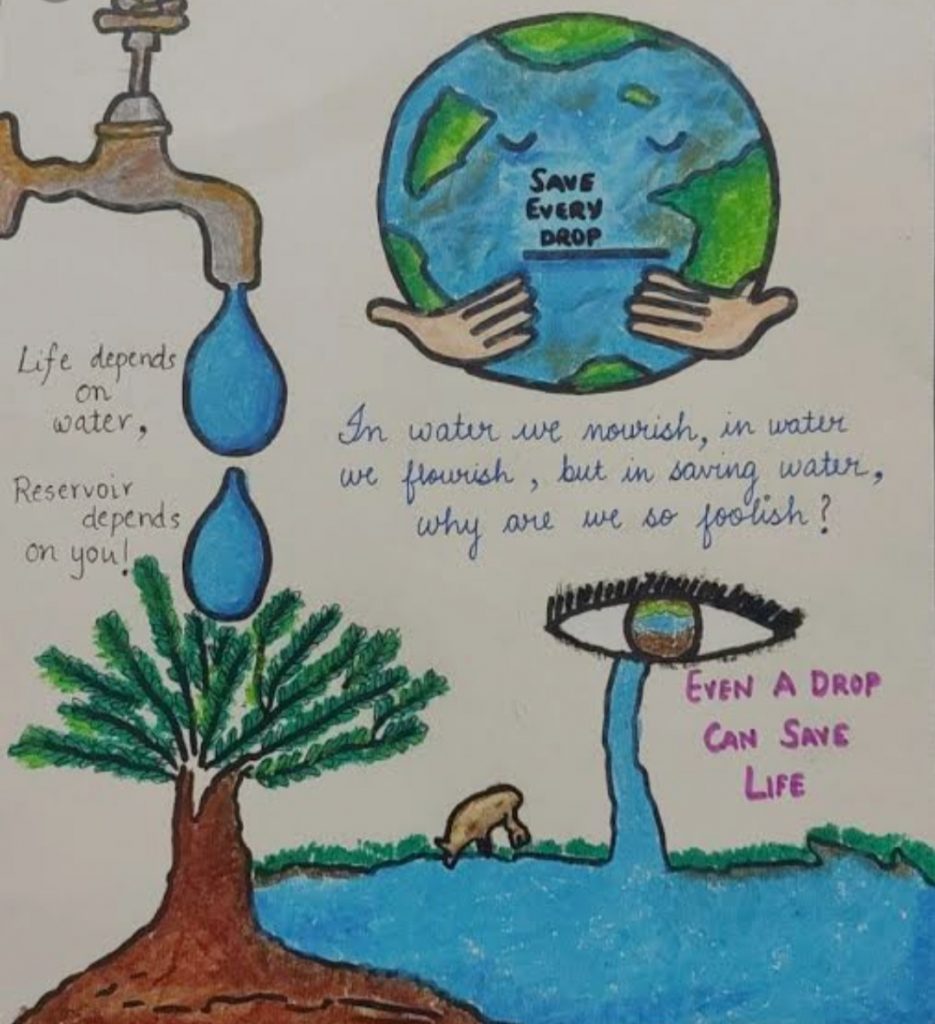 SAVE
EVERY
DROP
Life depends
on
water,
Reservoir
depends
on you!
In water we nourish, in water
we flourish, but in saving water,
why are we so foolish?
EVEN A DROP
CAN SAVE
LIFE